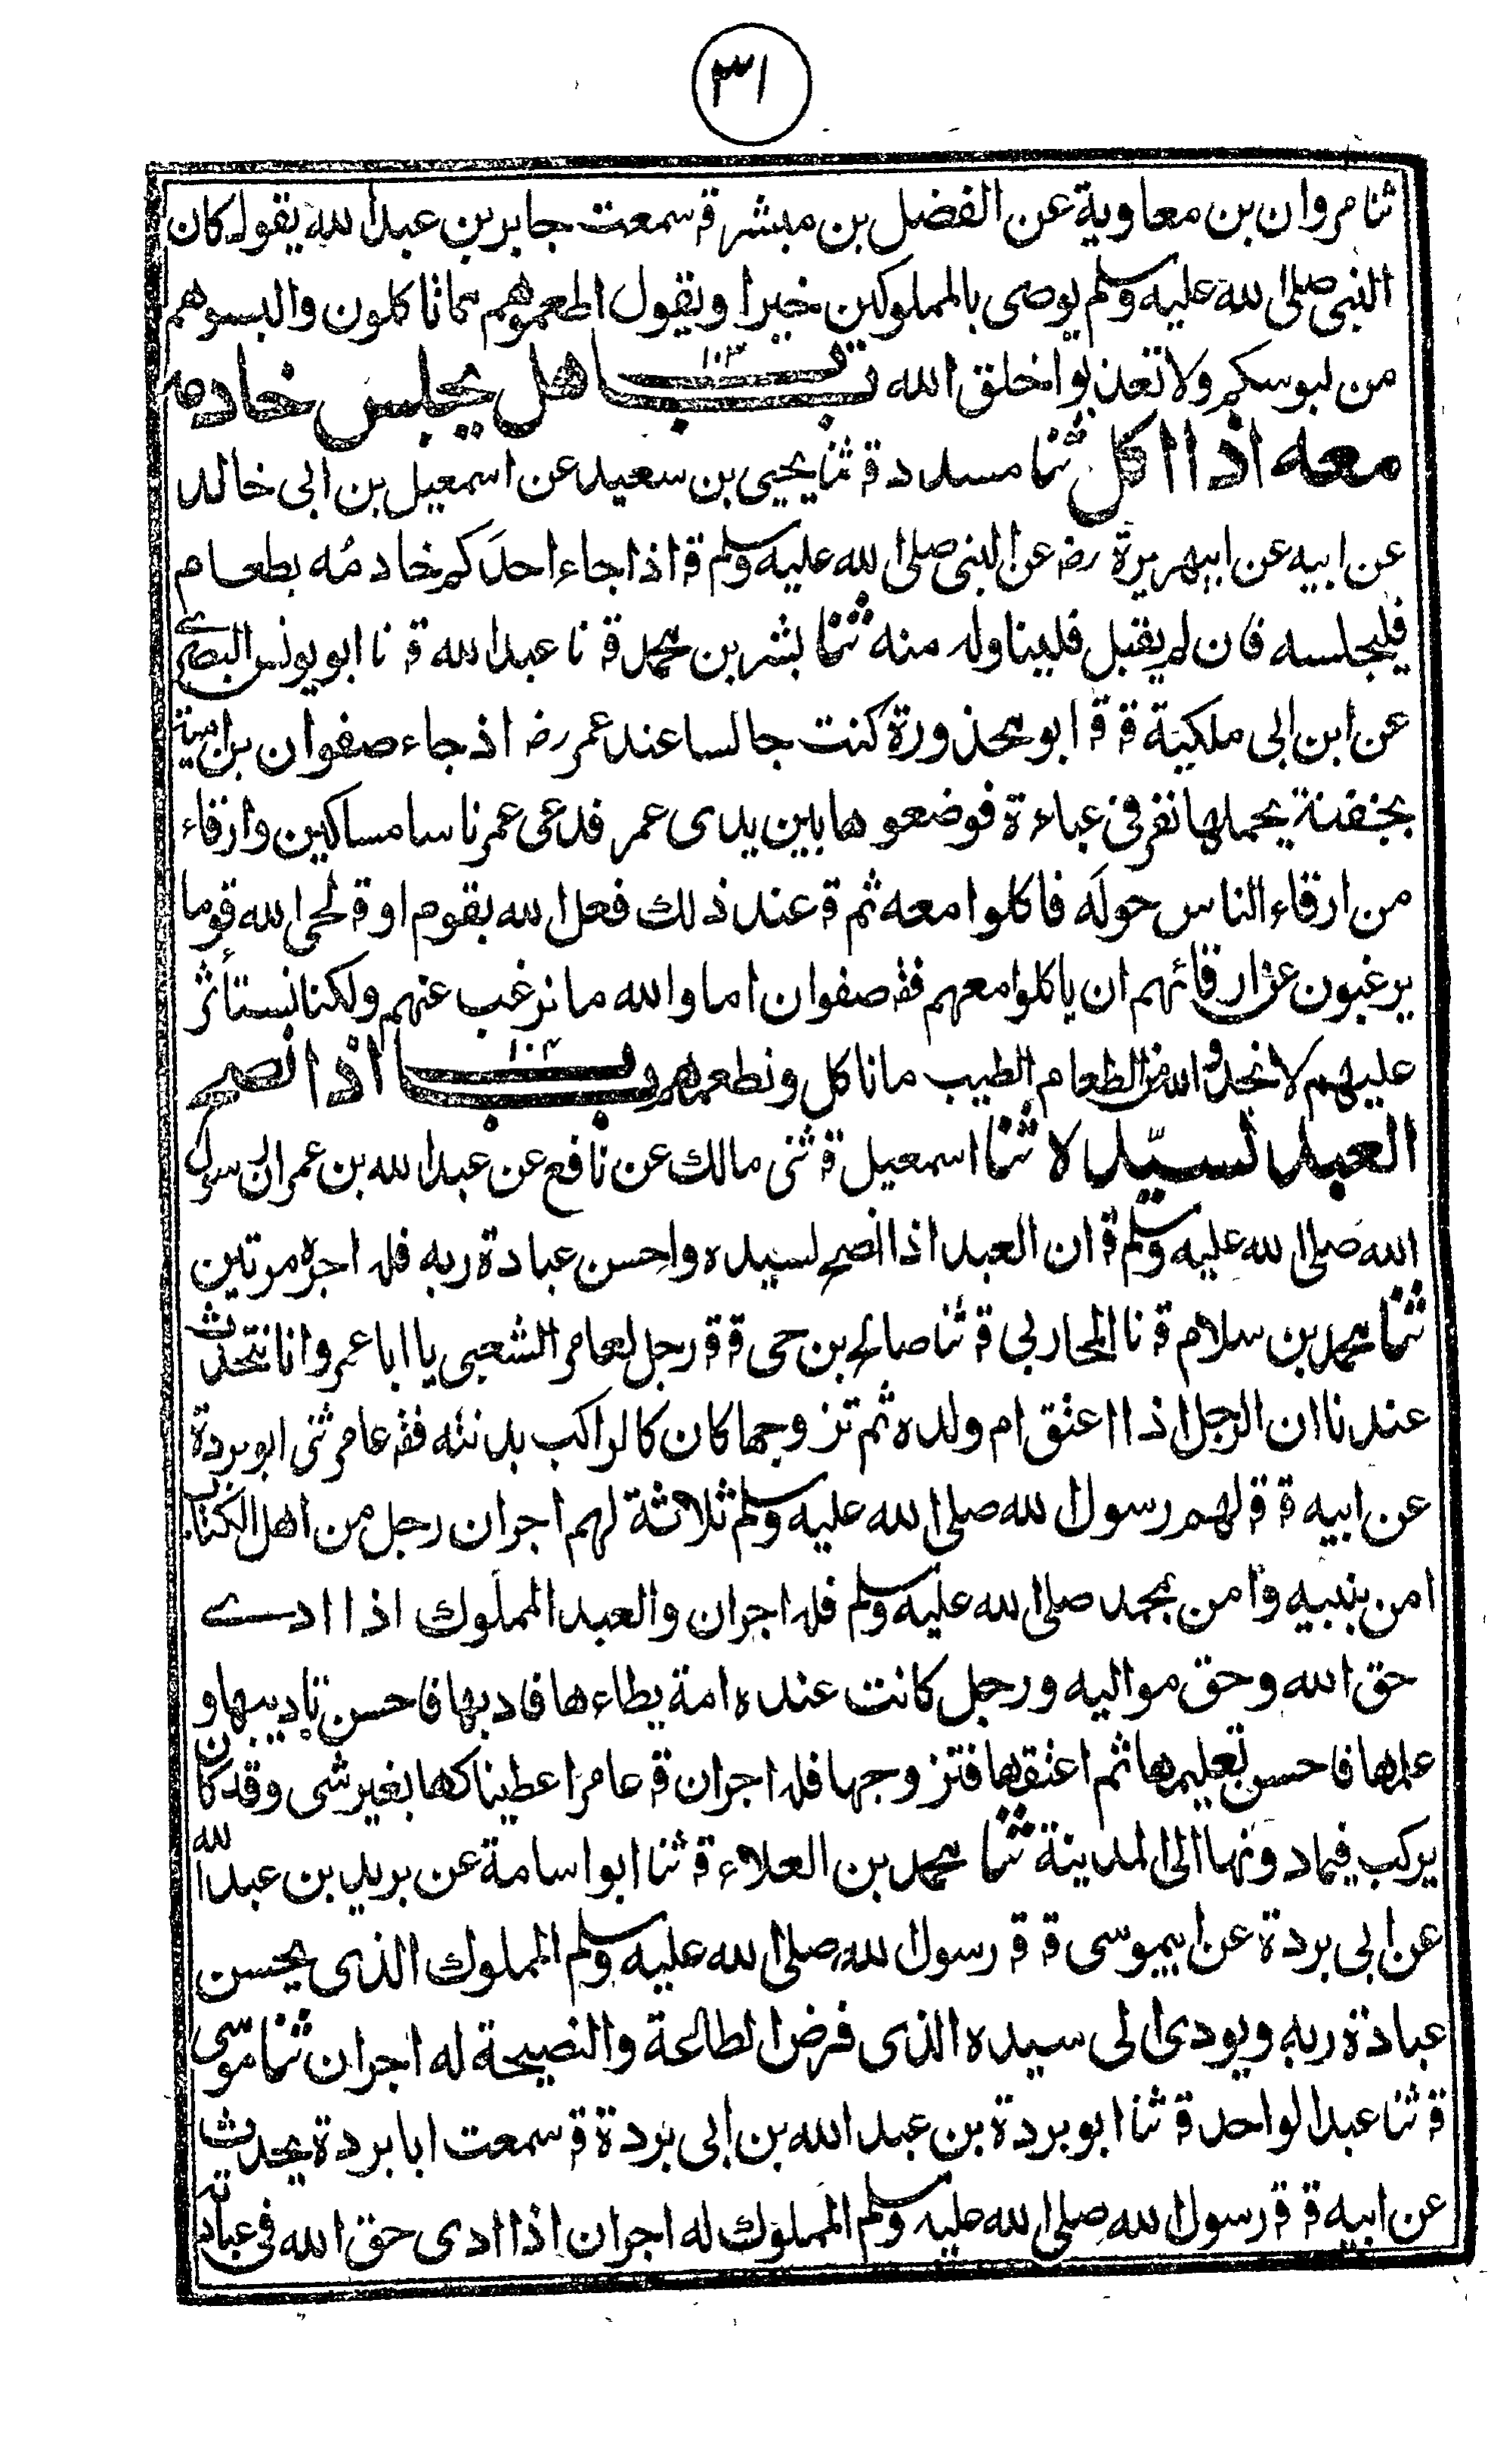 ٣١
ثنا مروان بن معاوية عن الفضل بن مبشر ق سمعت جابر بن عبد الله يقول كان
النبي صلى الله عليه وسلم يوصى بالمملوكين خيرا ويقول اطعموهم مما تاكلون والبسوهم
من لبوسكم ولا تعذبوا خلق الله باب ١٠٣ هل يجلس خادمه
معه اذا اكل ثنا مسدد ق ثنا يحيى بن سعيد عن اسمعيل بن ابى خالد
عن ابيه عن ابيهريرة رض عن النبى صلى الله عليه وسلم ق اذا جاء احدَكم خادمُه بطعام
فليجلسه فان لم يقبل فليناوله منه ثنا بشر بن محمد ق نا عبد الله ق نا ابو يونس البصرى
عن ابن ابى ملكية ق ق ابو محذورة كنت جالسا عند عمر رض اذ جاء صفوان بن امية
بجفنة يحملها نفر فى عباءة فوضعوها بين يدى عمر فدعى عمر ناسا مساكين وارقاء
من ارقاء الناس حوله فاكلوا معه ثم ق عند ذلك فعل الله بقوم او ق لحى الله قوما
يرغبون عن ارقائهم ان ياكلوا معهم فق صفوان اما والله ما نرغب عنهم ولكنا نستأثر
عليهم لا نجد والله من الطعام الطيب ما ناكل ونطعمهم باب ١٠٤ اذا نصح
العبد لسيّده ثنا اسمعيل ق ثنى مالك عن نافع عن عبد الله بن عمر ان رسول
الله صلى الله عليه وسلم ق ان العبد اذا نصح لسيده واحسن عبادة ربه فله اجره مرتين
ثنا محمد بن سلام ق نا المحاربى ق ثنا صالح بن حى ق ق رجل لعامر الشعبى يا ابا عمرو انا نتحدث
عندنا ان الرجل اذا اعتق ام ولده ثم تزوجها كان كالراكب بدنته فق عامر ثنى ابو بردة
عن ابيه ق ق لهم رسول الله صلى الله عليه وسلم ثلاثة لهم اجران رجل من اهل الكتاب
امن بنبيه وامن بمحمد صلى الله عليه وسلم فله اجران والعبد المملوك اذا ادى
حق الله وحق مواليه ورجل كانت عنده امة يطاءها فادبها فاحسن تاديبها و
علمها فاحسن تعليمها ثم اعتقها فتزوجها فله اجران ق عامر اعطيناكها بغير شى وقد كان
يركب فيما دونها الى المدينة ثنا محمد بن العلاء ق ثنا ابو اسامة عن بريد بن عبد الله
عن ابى بردة عن ابيموسى ق ق رسول الله صلى الله عليه وسلم المملوك الذى يحسن
عبادة ربه ويودى الى سيده الذى فرض الطاعة والنصيحة له اجران ثنا موسى
ق ثنا عبد الواحد ق ثنا ابو بردة بن عبد الله بن ابى بردة ق سمعت ابا بردة يحدث
عن ابيه ق ق رسول الله صلى الله عليه وسلم المملوك له اجران اذا ادى حق الله فى عبادته